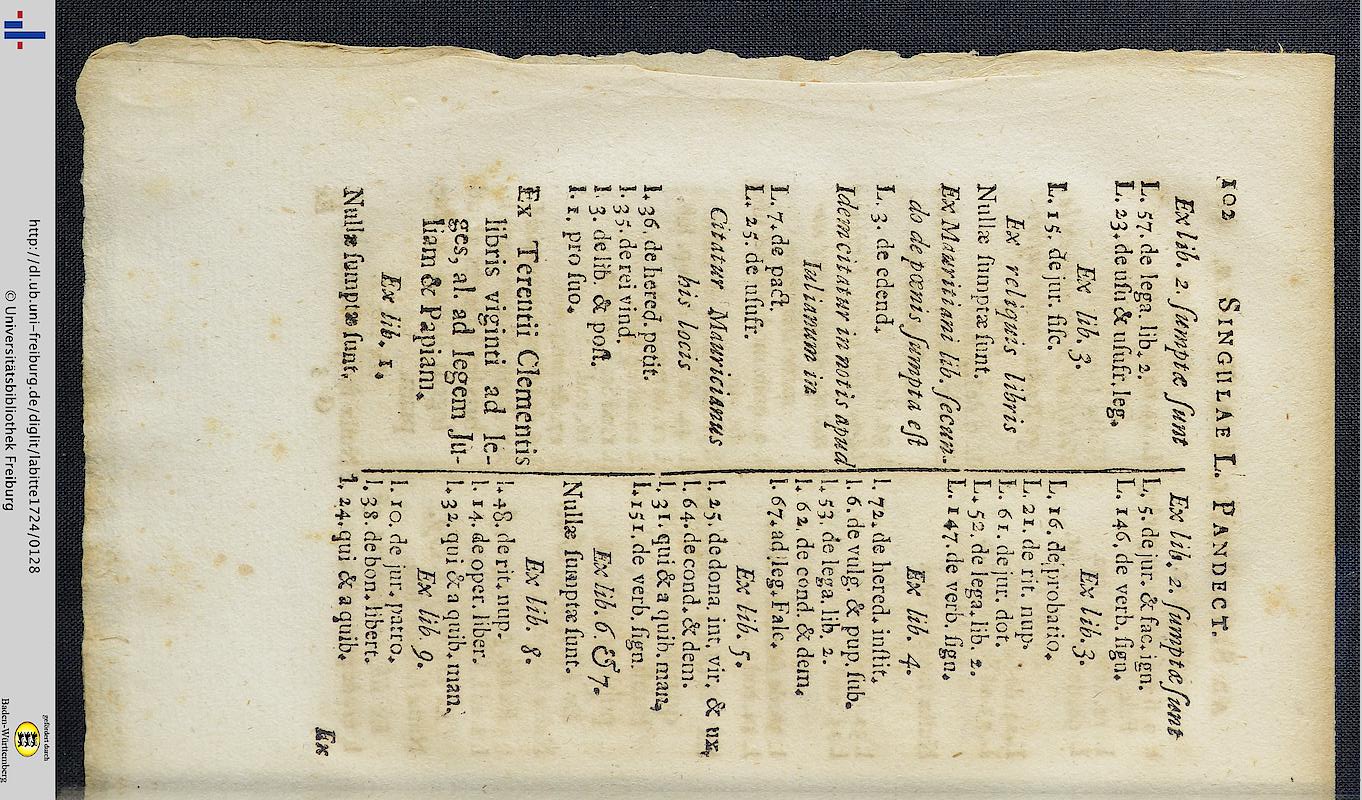 102 SINGULAE L. PANDECT.
Ex lib. 2. ſumptæ ſunt
L. 57. de lega. lib. 2.
L. 23. de uſu & uſufr. leg.
Ex lib. 3.
L. 15. de jur. fiſc.
Ex reliquis libris
Nullæ ſumptæ ſunt.
Ex Mauritiani lib. ſecun-
do de pœnis ſumpta eſt
L. 3. de edend.
Idem citatur in notis apud
Iulianum in
L. 7. de pact.
L. 25. de uſufr.
Citatur Mauricianus
his locis
l. 36. de hered. petit.
l. 35. de rei vind.
l. 3. de lib. & poſt.
l. 1. pro ſuo.
Ex Terentii Clementis
libris viginti ad le-
ges, al. ad legem Ju-
liam & Papiam.
Ex lib. 1.
Nullæ ſumptæ ſunt.
Ex lib. 2. ſumptæ ſunt
L. 5. de jur. & fac. ign.
L. 146. de verb. ſign.
Ex lib. 3.
L. 16. de probatio.
L. 21. de rit. nup.
L. 61. de jur. dot.
L. 52. de lega. lib. 2.
L. 147. de verb. ſign.
Ex lib. 4.
l. 72. de hered. inſtit.
l. 6. de vulg. & pup. ſub.
l. 53. de lega. lib. 2.
l. 62. de cond. & dem.
l. 67. ad leg. Falc.
Ex lib. 5.
l. 25. de dona. int. vir. & ux.
l. 64. de cond. & dem.
l. 31. qui & a quib. man.
l. 151. de verb. ſign.
Ex lib. 6. & 7.
Nullæ ſumptæ ſunt.
Ex lib. 8.
l. 48. de rit. nup.
l. 14. de oper. liber.
l. 32. qui & a quib. man.
Ex lib. 9.
l. 10. de jur. patro.
l. 38. de bon. libert.
l. 24. qui & a quib.
Ex
http://dl.ub.uni-freiburg.de/diglit/labitte1724/0128
© Universitätsbibliothek Freiburg
gefördert durch
Baden-Württemberg